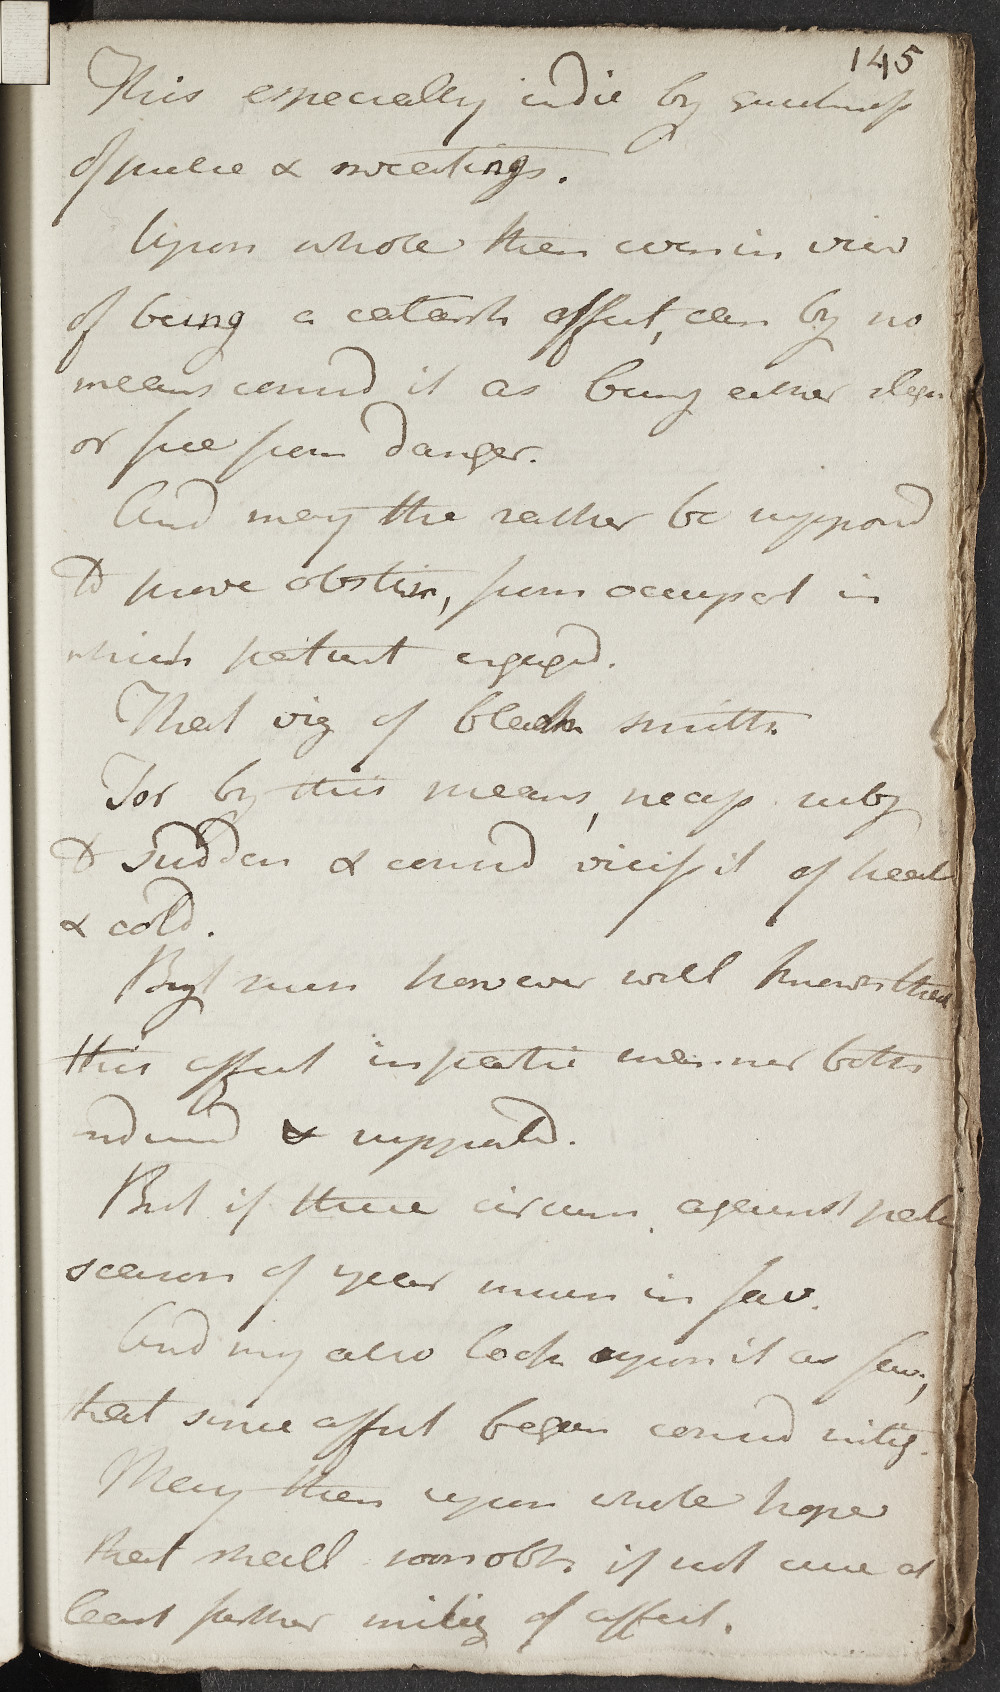 145
This especially indic by quickness
of pulse & sweatings.
Upon whole then even in view
of being a catarrh affect, can by no
means consid it as being either slight
or free from danger.
And may the rather be supposd
to prove obstin, from occupat in
which patient engagd.
That viz of black smith.
For by this means, necess subj
to sudden & consid viciss it of heat
& cold.
But even however well known that
this affect in particular manner both
inducd & supportd.
But if these circum against pat
season of year much in fav.
And my also look upon it as fav;
that since affect began consid mitig.
May then upon whole hope
that shall soon obtn if not cure at
least further mitig of affect.